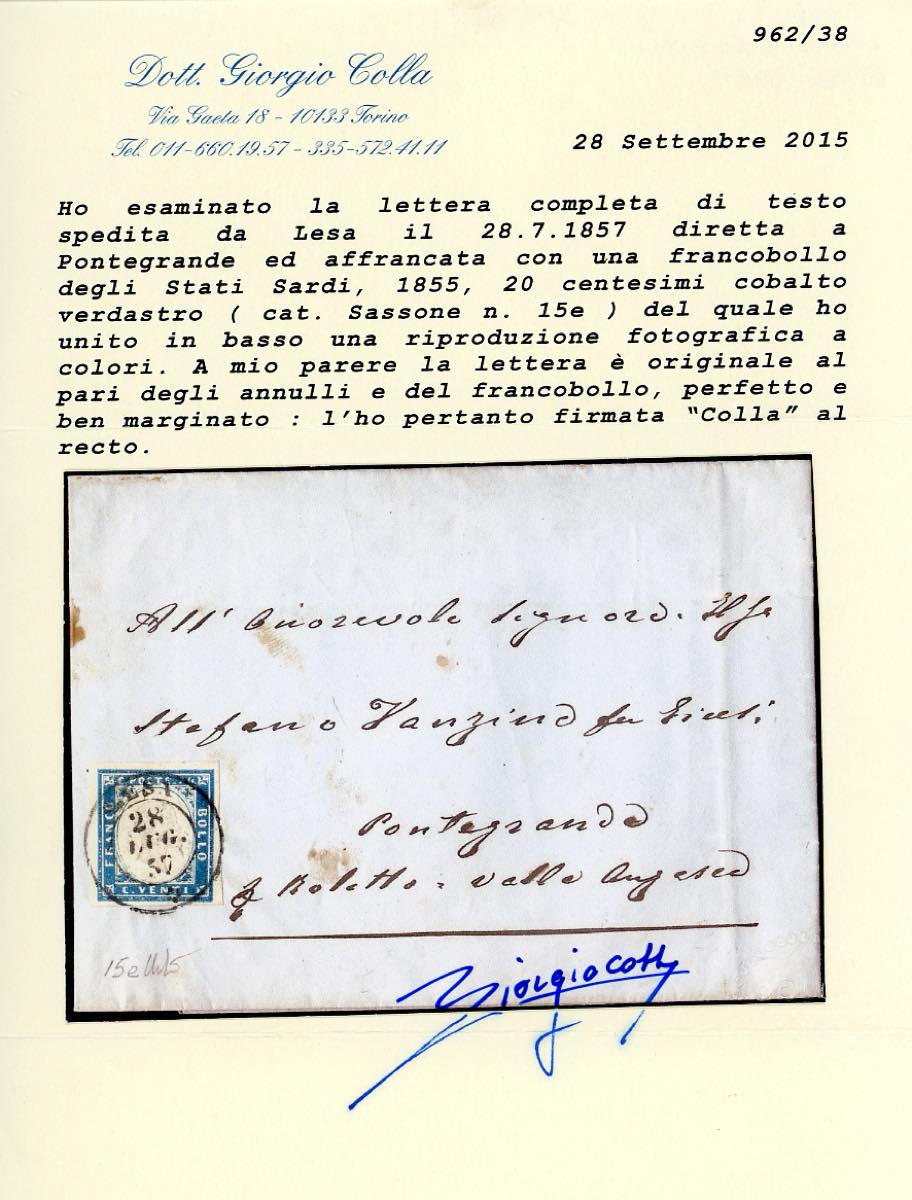 962/38
Dott. Giorgio Colla
Via Gaeta 18 - 10133 Torino
Tel. 011-660.19.57 - 335-572.41.11
28 Settembre 2015
Ho esaminato la lettera completa di testo
spedita da Lesa il 28.7.1857 diretta a
Pontegrande ed affrancata con una francobollo
degli Stati Sardi, 1855, 20 centesimi cobalto
verdastro ( cat. Sassone n. 15e ) del quale ho
unito in basso una riproduzione fotografica a
colori. A mio parere la lettera è originale al
pari degli annulli e del francobollo, perfetto e
ben marginato : l'ho pertanto firmata “Colla” al
recto.
All'
Stefano Vanzino
Pontegrande
LESA
28
LUG.
57
POSTE
FRANCO
BOLLO
C. VENTI
15e
Giorgio Colla